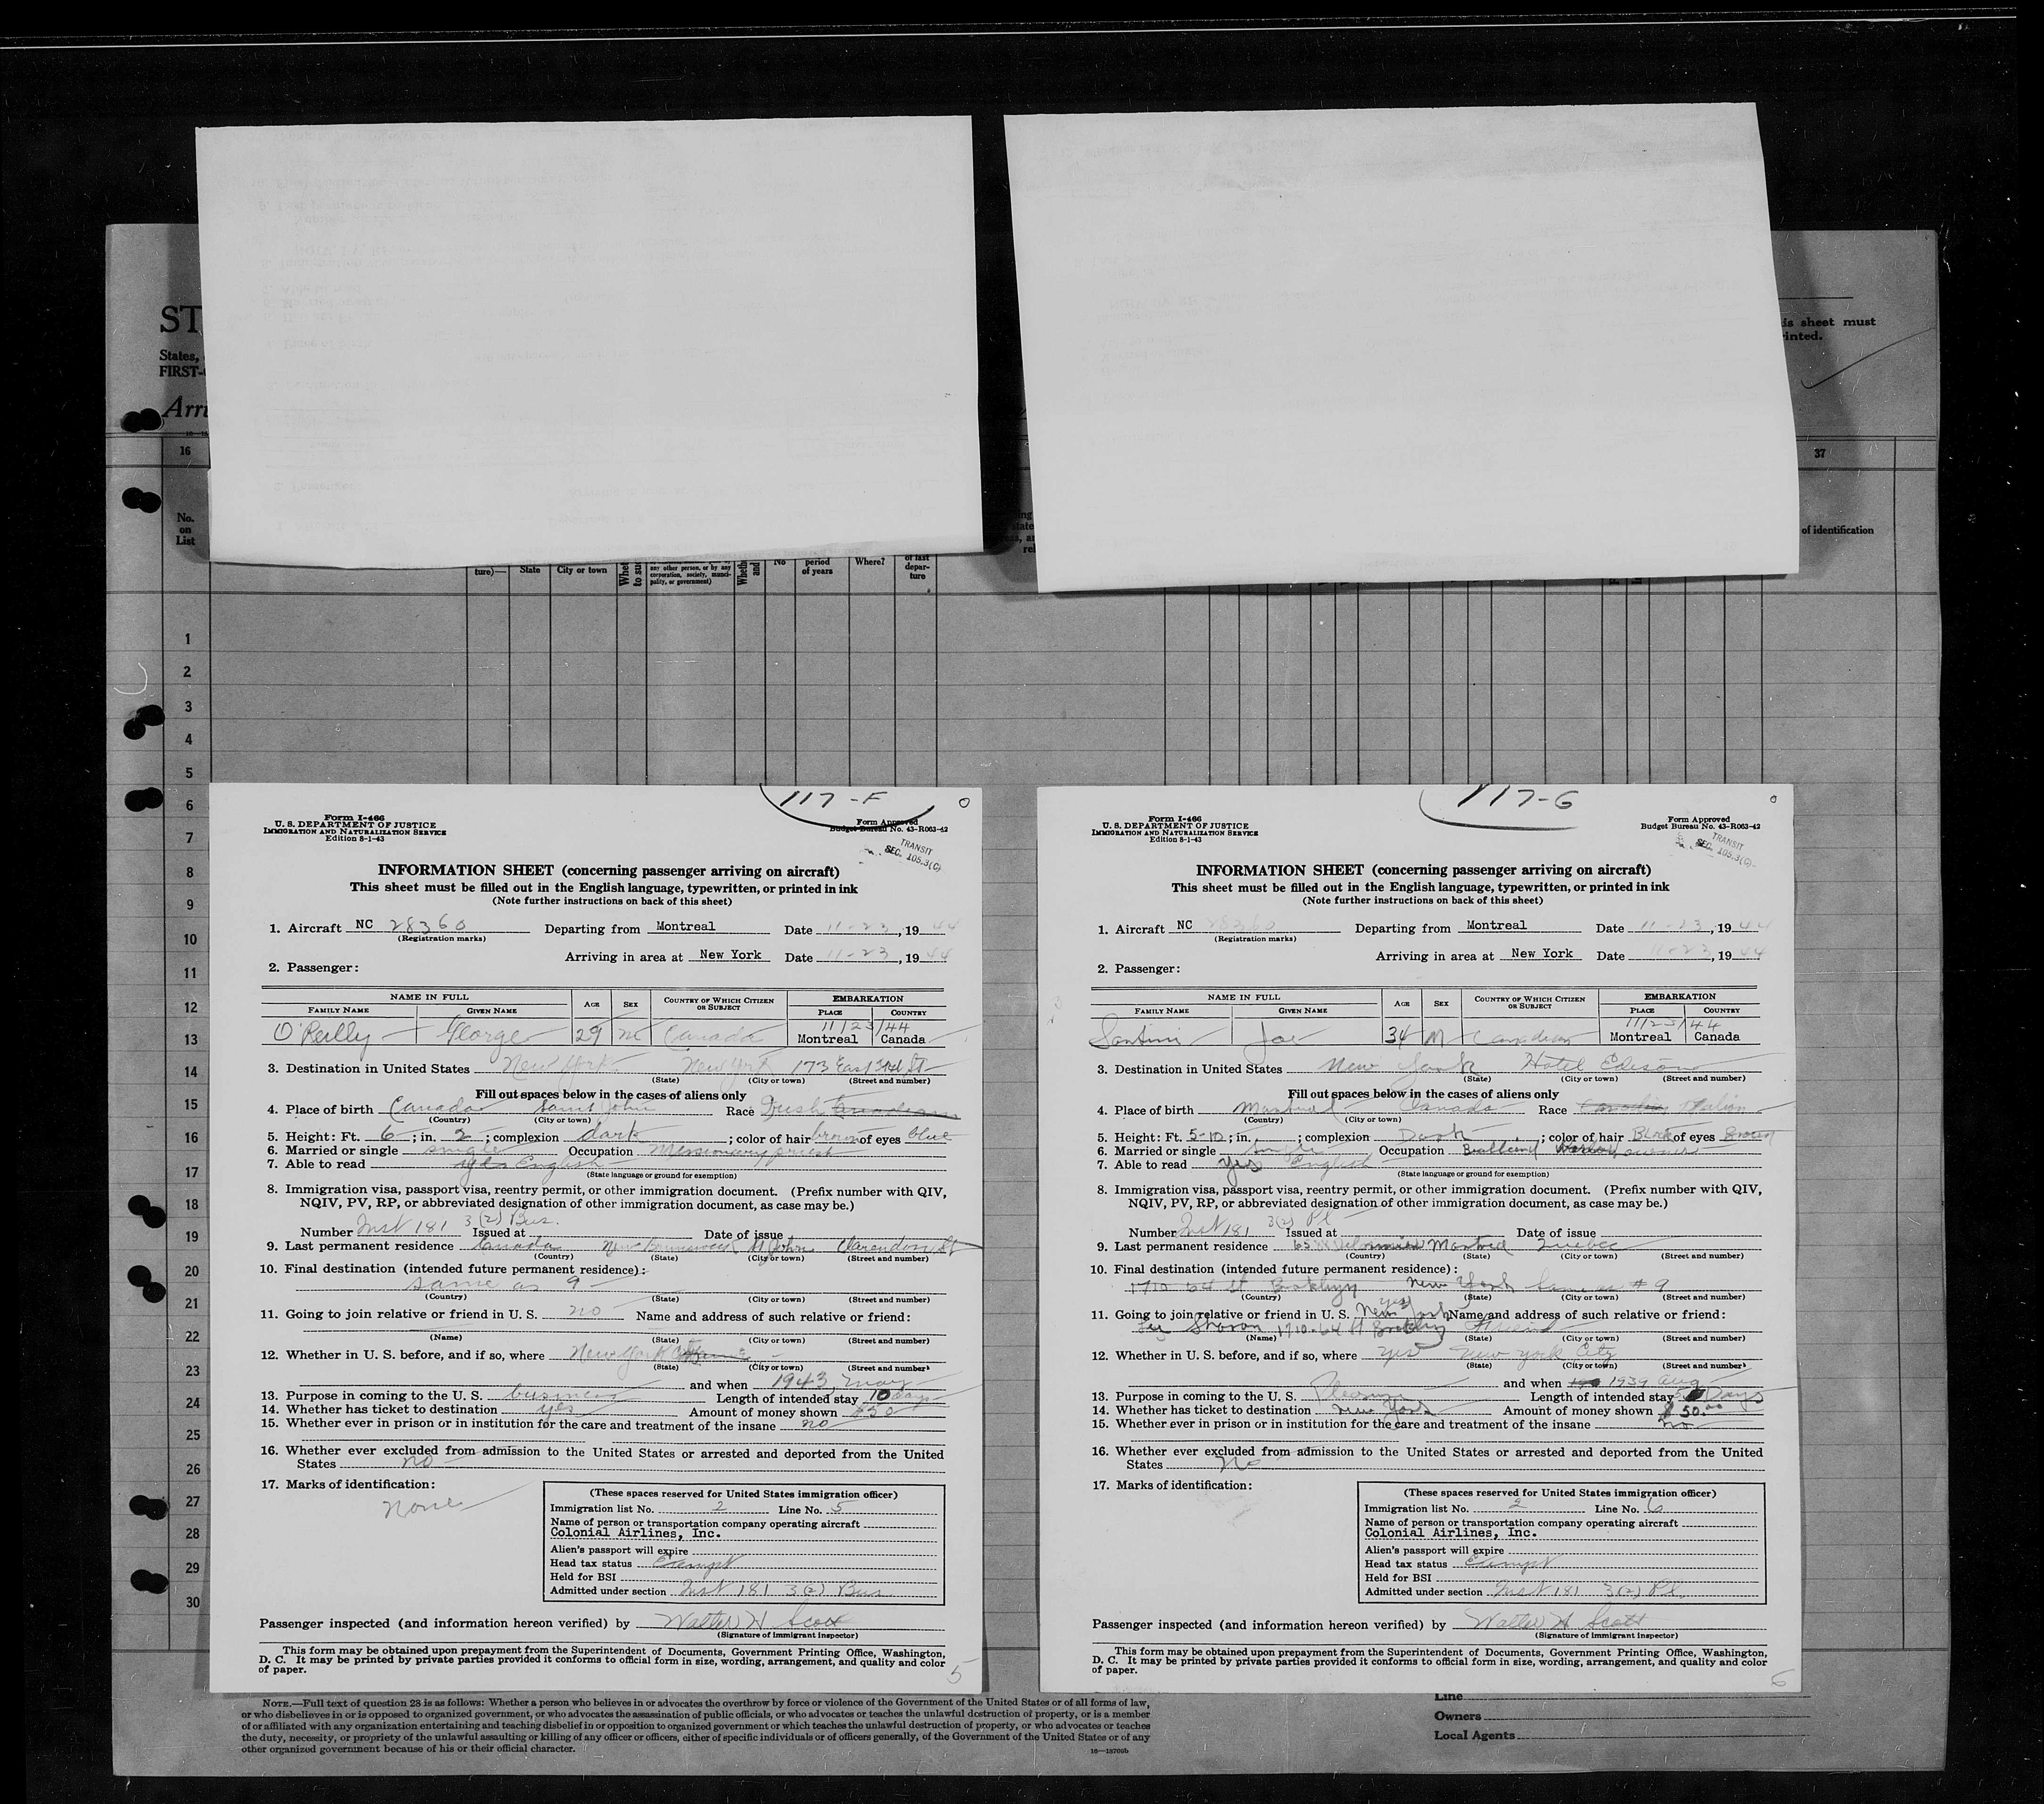 ST
States,
FIRST-
Arri
is sheet must
inted.
16
37
No.
on
List
of identification
ture)—
State
City or town
any other person, or by any
corporation, society, munici-
pality, or government)
No
period
of years
Where?
of last
depar-
ture
1
2
3
4
5
6
7
8
9
10
11
12
13
14
15
16
17
18
19
20
21
22
23
24
25
26
27
28
29
30
117-F
Form I-466
U. S. DEPARTMENT OF JUSTICE
IMMIGRATION AND NATURALIZATION SERVICE
Edition 8-1-43
Form Approved
Budget Bureau No. 43-R063-42
TRANSIT
SEC. 105.3(C)
INFORMATION SHEET (concerning passenger arriving on aircraft)
This sheet must be filled out in the English language, typewritten, or printed in ink
(Note further instructions on back of this sheet)
1. Aircraft NC 28360 Departing from Montreal Date 11-23, 1944
(Registration marks)
Arriving in area at New York Date 11-23, 1944
2. Passenger:
NAME IN FULL AGE SEX COUNTRY OF WHICH CITIZEN OR SUBJECT EMBARKATION
FAMILY NAME GIVEN NAME PLACE COUNTRY
11/23/44
O'Reilly George 29 M Canada Montreal Canada
3. Destination in United States New York New York 173 East 3rd St
(State) (City or town) (Street and number)
Fill out spaces below in the cases of aliens only
4. Place of birth Canada Saint John Race Irish Canadian
(Country) (City or town)
5. Height: Ft. 6; in. 2; complexion dark; color of hair brown of eyes blue
6. Married or single single Occupation Missionary priest
7. Able to read yes English
(State language or ground for exemption)
8. Immigration visa, passport visa, reentry permit, or other immigration document. (Prefix number with QIV,
NQIV, PV, RP, or abbreviated designation of other immigration document, as case may be.)
Number Inst 181 3(2) Bus. Issued at Date of issue
9. Last permanent residence Canada New Brunswick St John Clarendon St
(Country) (State) (City or town) (Street and number)
10. Final destination (intended future permanent residence):
same as 9
(Country) (State) (City or town) (Street and number)
11. Going to join relative or friend in U. S. no Name and address of such relative or friend:
(Name) (State) (City or town) (Street and number)
12. Whether in U. S. before, and if so, where New York City
(State) (City or town) (Street and number)
and when 1943 May
13. Purpose in coming to the U. S. business Length of intended stay 10 days
14. Whether has ticket to destination yes Amount of money shown $50
15. Whether ever in prison or in institution for the care and treatment of the insane no
16. Whether ever excluded from admission to the United States or arrested and deported from the United
States no
17. Marks of identification:
none
(These spaces reserved for United States immigration officer)
Immigration list No. 2 Line No. 5
Name of person or transportation company operating aircraft
Colonial Airlines, Inc.
Alien's passport will expire
Head tax status Exempt
Held for BSI
Admitted under section Inst 181 3(2) Bus
Passenger inspected (and information hereon verified) by Walter H Scott
(Signature of Immigrant Inspector)
This form may be obtained upon prepayment from the Superintendent of Documents, Government Printing Office, Washington,
D. C. It may be printed by private parties provided it conforms to official form in size, wording, arrangement, and quality and color
of paper.
5
117-G
Form I-466
U. S. DEPARTMENT OF JUSTICE
IMMIGRATION AND NATURALIZATION SERVICE
Edition 8-1-43
Form Approved
Budget Bureau No. 43-R063-42
TRANSIT
SEC. 105.3(C)
INFORMATION SHEET (concerning passenger arriving on aircraft)
This sheet must be filled out in the English language, typewritten, or printed in ink
(Note further instructions on back of this sheet)
1. Aircraft NC 28360 Departing from Montreal Date 11-23, 1944
(Registration marks)
Arriving in area at New York Date 11-23, 1944
2. Passenger:
NAME IN FULL AGE SEX COUNTRY OF WHICH CITIZEN OR SUBJECT EMBARKATION
FAMILY NAME GIVEN NAME PLACE COUNTRY
11/23/44
Santini Joe 34 M Canadian Montreal Canada
3. Destination in United States New York Hotel Edison
(State) (City or town) (Street and number)
Fill out spaces below in the cases of aliens only
4. Place of birth Montreal Canada Race Canadian Italian
(Country) (City or town)
5. Height: Ft. 5-10; in. ; complexion Dark; color of hair Black of eyes Brown
6. Married or single single Occupation owner
7. Able to read yes English
(State language or ground for exemption)
8. Immigration visa, passport visa, reentry permit, or other immigration document. (Prefix number with QIV,
NQIV, PV, RP, or abbreviated designation of other immigration document, as case may be.)
Number Inst 181 3(2) Pl Issued at Date of issue
9. Last permanent residence Montreal Quebec
(Country) (State) (City or town) (Street and number)
10. Final destination (intended future permanent residence):
1710 64 St Brooklyn New York Same as # 9
(Country) (State) (City or town) (Street and number)
11. Going to join relative or friend in U. S. yes New York Name and address of such relative or friend:
Sharon 1710-64 St Brooklyn Friend
(Name) (State) (City or town) (Street and number)
12. Whether in U. S. before, and if so, where yes New York City
(State) (City or town) (Street and number)
and when 1939 Aug
13. Purpose in coming to the U. S. Pleasure Length of intended stay Days
14. Whether has ticket to destination New York Amount of money shown $ 50.00
15. Whether ever in prison or in institution for the care and treatment of the insane no
16. Whether ever excluded from admission to the United States or arrested and deported from the United
States No
17. Marks of identification:
(These spaces reserved for United States immigration officer)
Immigration list No. 2 Line No. 6
Name of person or transportation company operating aircraft
Colonial Airlines, Inc.
Alien's passport will expire
Head tax status Exempt
Held for BSI
Admitted under section Inst 181 3(2) Pl.
Passenger inspected (and information hereon verified) by Walter H Scott
(Signature of Immigrant Inspector)
This form may be obtained upon prepayment from the Superintendent of Documents, Government Printing Office, Washington,
D. C. It may be printed by private parties provided it conforms to official form in size, wording, arrangement, and quality and color
of paper.
6
NOTE.—Full text of question 28 is as follows: Whether a person who believes in or advocates the overthrow by force or violence of the Government of the United States or of all forms of law,
or who disbelieves in or is opposed to organized government, or who advocates the assassination of public officials, or who advocates or teaches the unlawful destruction of property, or is a member
of or affiliated with any organization entertaining and teaching disbelief in or opposition to organized government or which teaches the unlawful destruction of property, or who advocates or teaches
the duty, necessity, or propriety of the unlawful assaulting or killing of any officer or officers, either of specific individuals or of officers generally, of the Government of the United States or of any
other organized government because of his or their official character.
16—18709b
Line
Owners
Local Agents